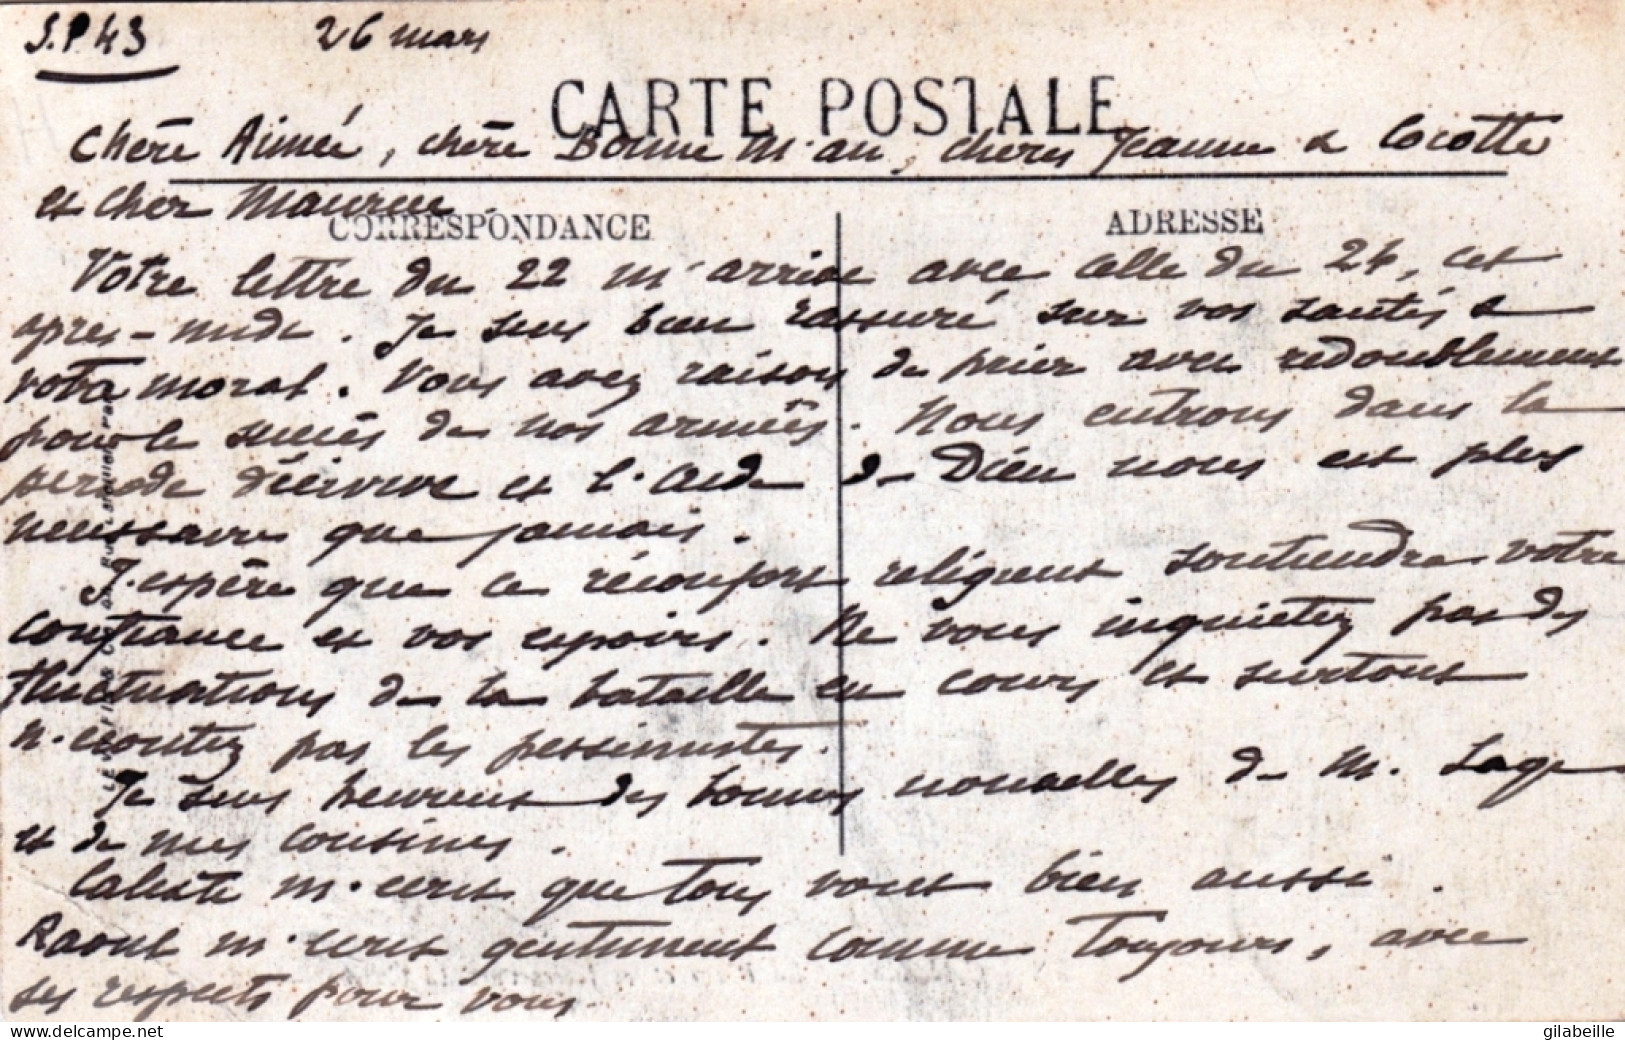 S.P.43 26 mars
CARTE POSTALE
Chère Aimée, chère Bonne M'an, chères Jeanne & Cocotte
et cher Maurice
CORRESPONDANCE ADRESSE
Votre lettre du 22 m'arrive avec celle du 24, cet
après-midi. Je suis bien rassuré sur vos santés &
votre moral. Vous avez raison de prier avec redoublement
pour le succès de nos armées. Nous entrons dans la
période décisive et l'aide de Dieu nous est plus
nécessaire que jamais.
J'espère que ce réconfort religieux soutiendra votre
confiance et vos espoirs. Ne vous inquiétez pas des
fluctuations de la bataille en cours et surtout
n'écoutez pas les pessimistes.
Je suis heureux des bonnes nouvelles de M.
et de mes cousines.
Caliste m'écrit que tous vont bien aussi.
Raoul m'écrit gentiment comme toujours, avec
ses respects pour vous.
delcampe.net
gilabeille